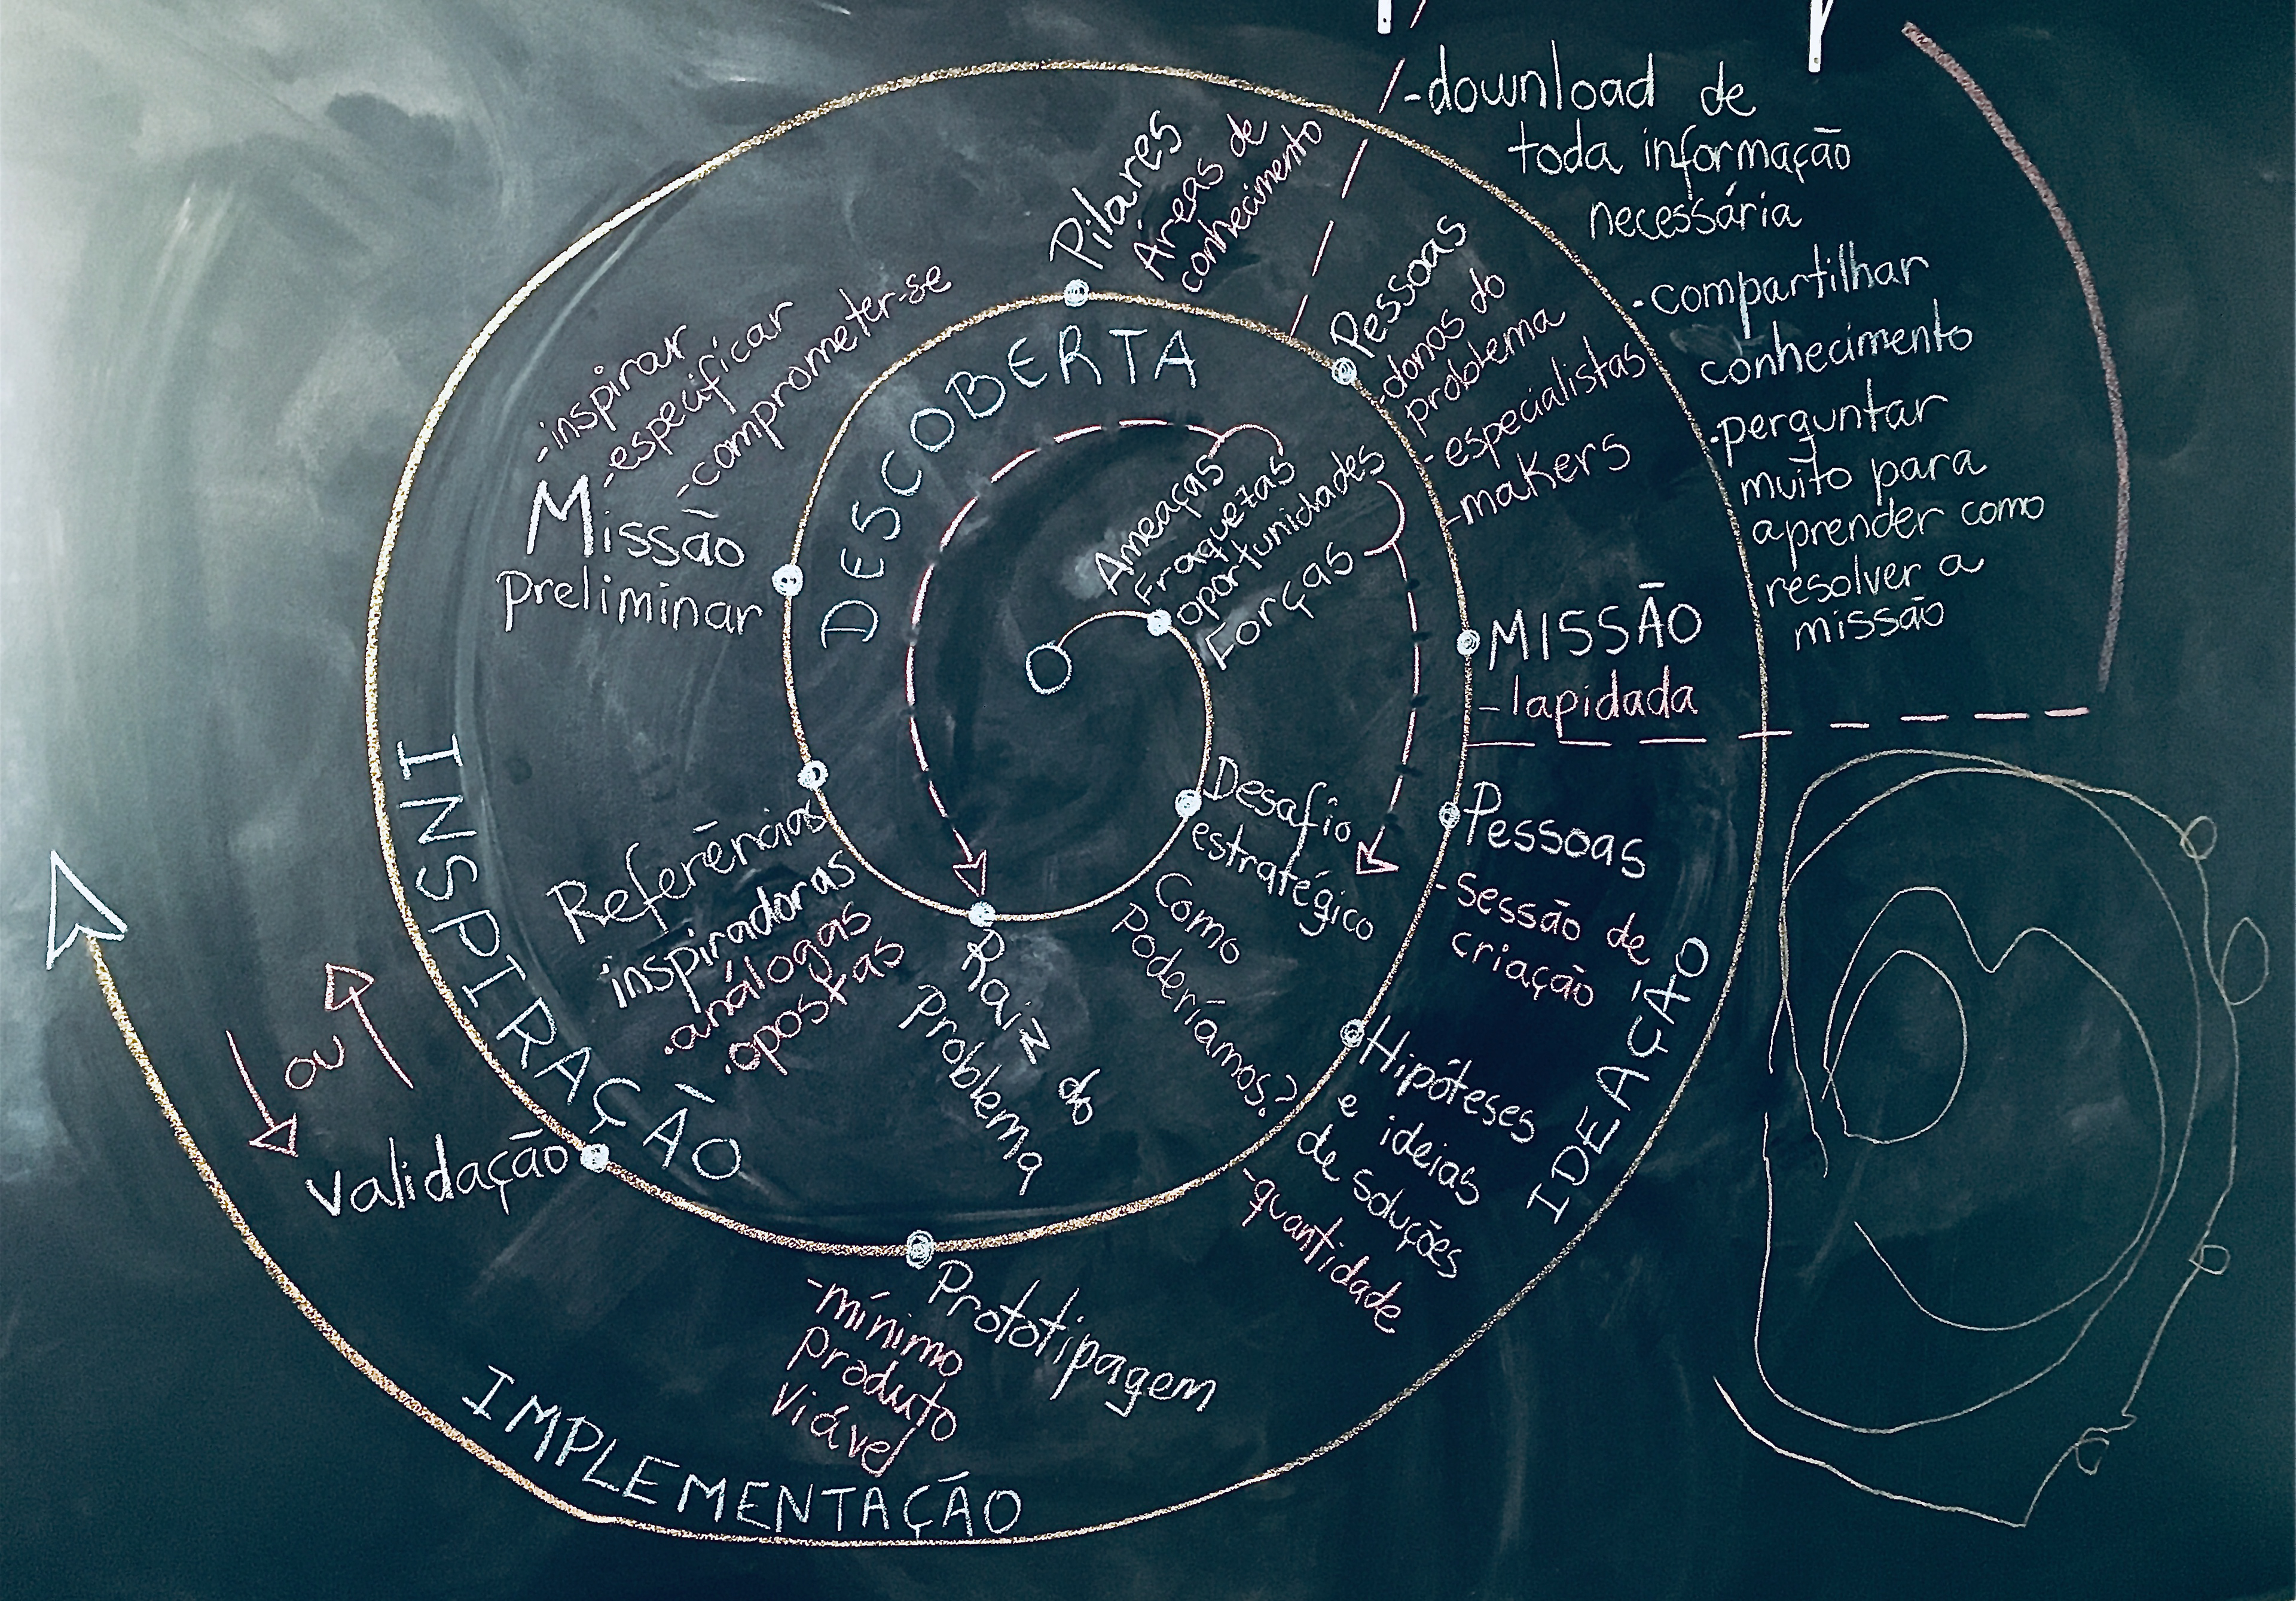 Pilares
Áreas de
conhecimento
-download de
toda informação
necessária
•compartilhar
conhecimento
•perguntar
muito para
aprender como
resolver a
missão
Pessoas
-donas do
problema
-especialistas
-makers
-inspirar
-especificar
-comprometer-se
Missão
preliminar
DESCOBERTA
Ameaças
Fraquezas
oportunidades
Forças
MISSÃO
-lapidada
Desafio
estratégico
Como
Poderíamos?
Pessoas
-sessão de
criação
Referências
inspiradoras
.análogas
.opostas
Raiz do
Problema
INSPIRAÇÃO
Hipóteses
e ideias
de soluções
-quantidade
IDEAÇÃO
ou
validação
Prototipagem
-mínimo
produto
viável
IMPLEMENTAÇÃO